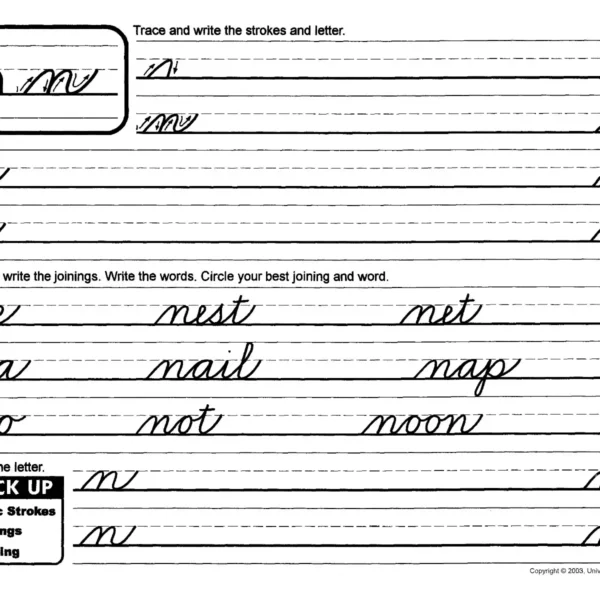 Trace and write the strokes and letter.
n
write the joinings. Write the words. Circle your best joining and word.
e nest net
a nail nap
o not noon
he letter.
CK UP n n
c Strokes
ngs n n
ing
Copyright © 2003, Univ